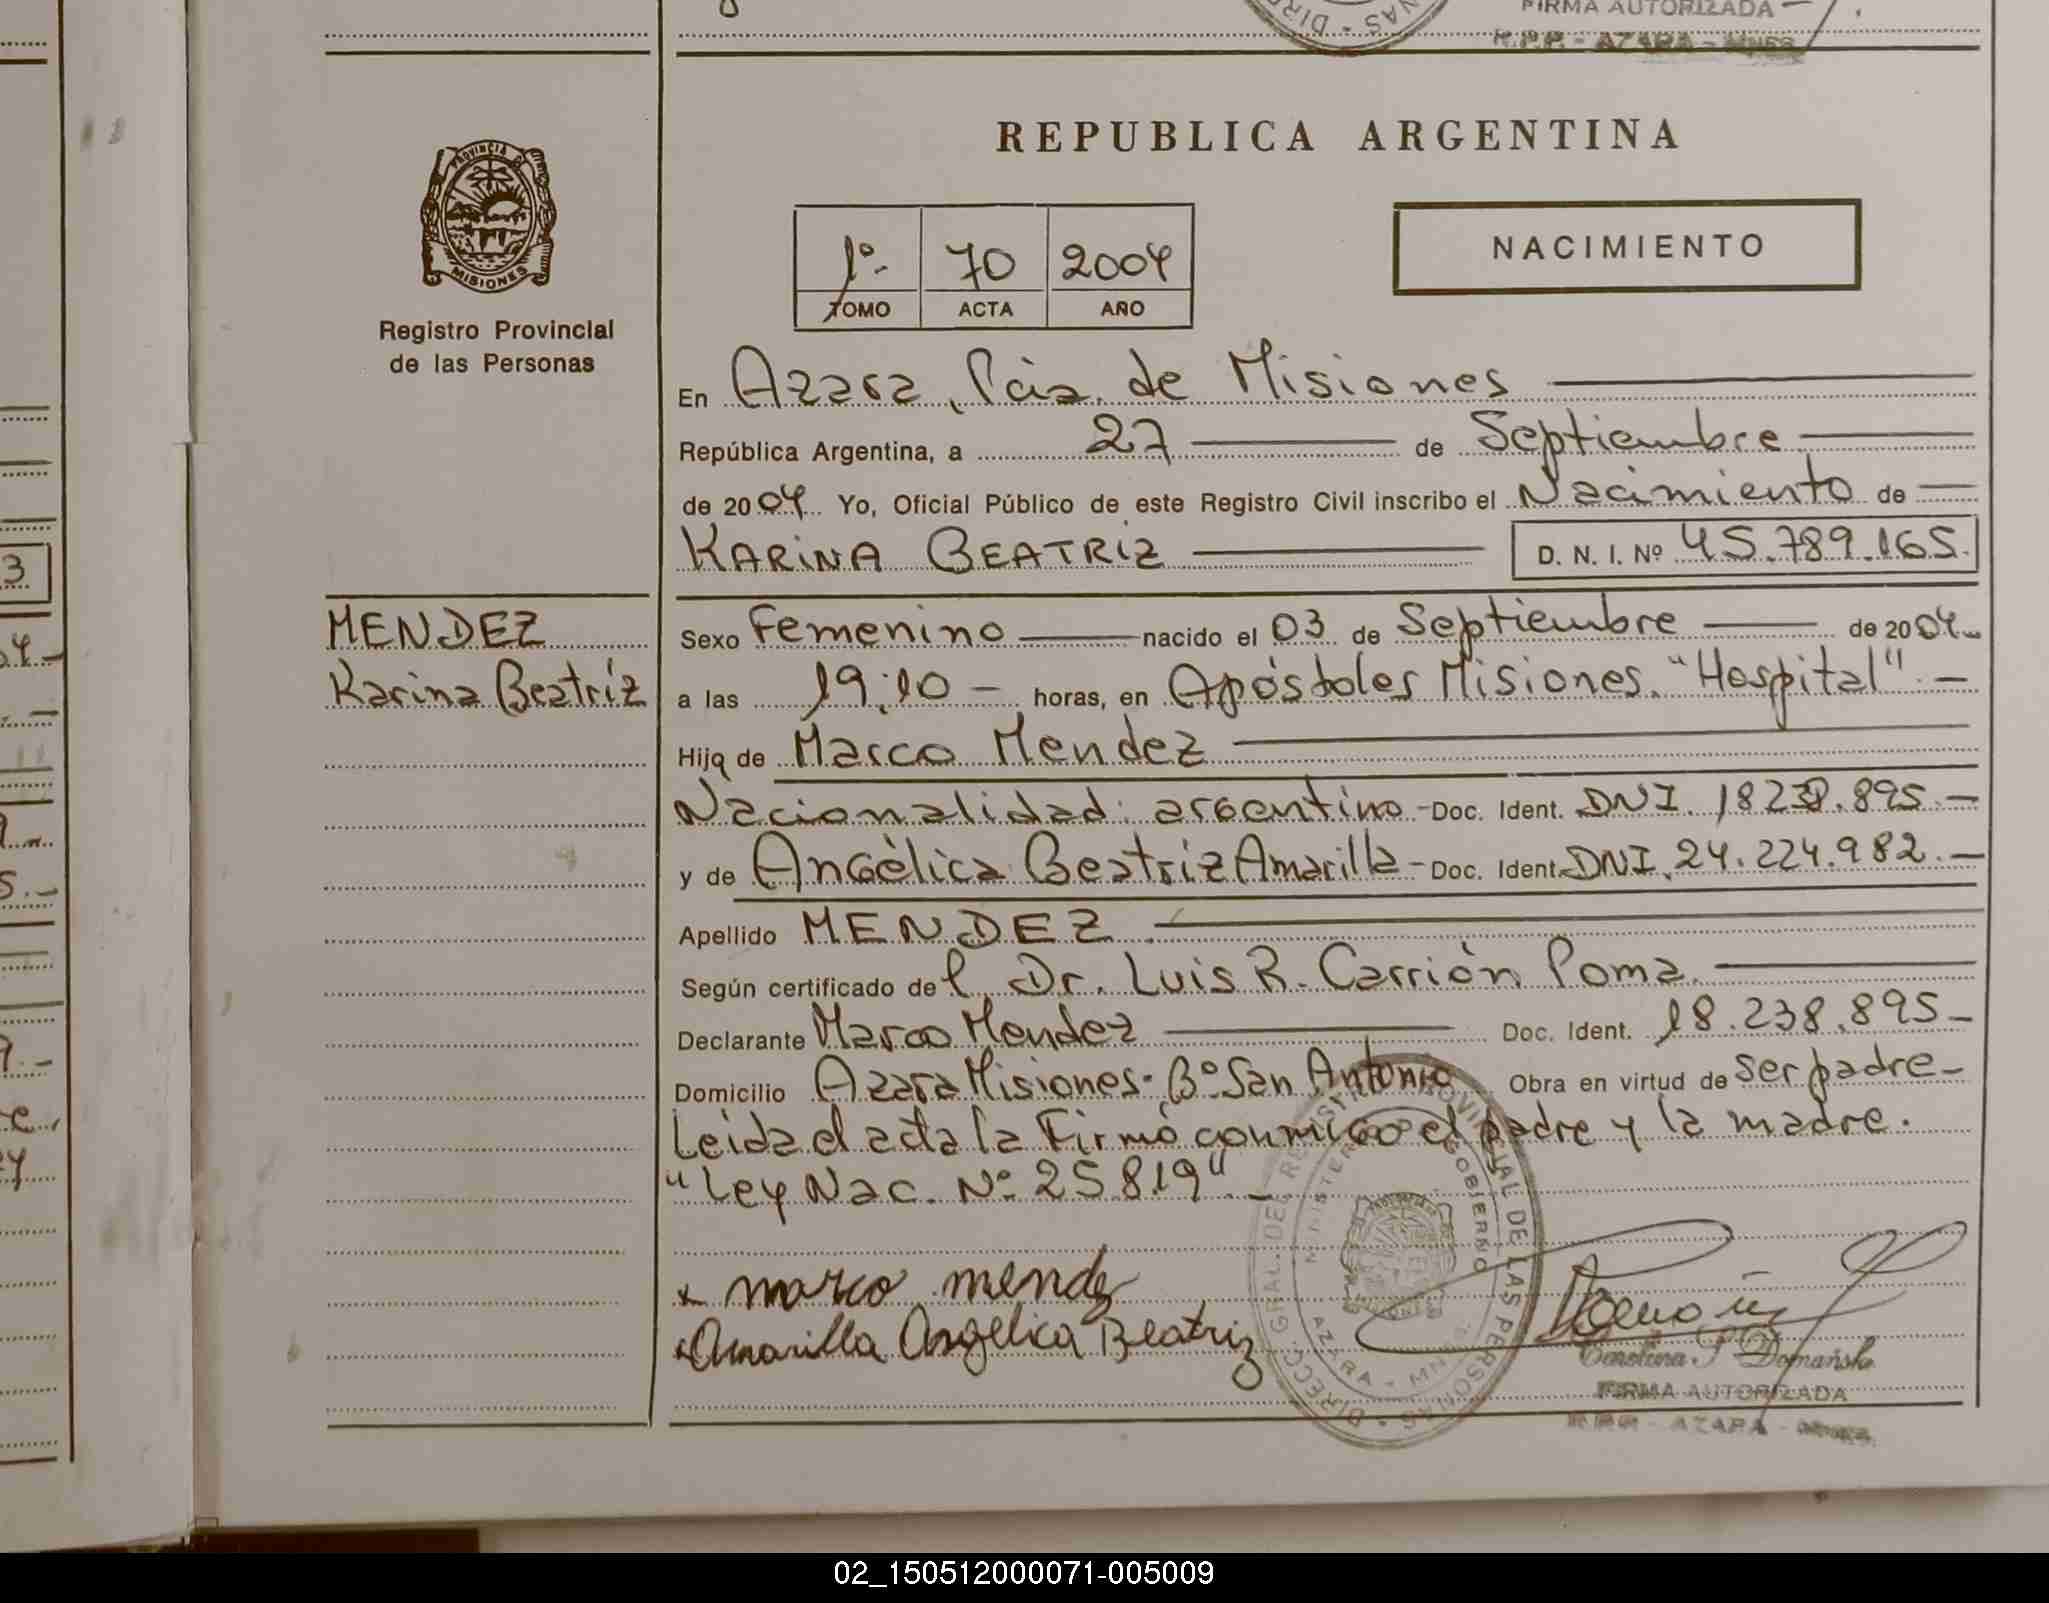 FIRMA AUTORIZADA
R.P.P. - AZARA - MNES
REPUBLICA ARGENTINA
PROVINCIA DE
MISIONES
Registro Provincial
de las Personas
1º- 70 2004
TOMO ACTA AÑO
NACIMIENTO
En Azara, Pcia. de Misiones
República Argentina, a 27 de Septiembre
de 2004 Yo, Oficial Público de este Registro Civil inscribo el Nacimiento de
KARINA BEATRIZ D. N. I. Nº 45.789.165.
MENDEZ
Karina Beatríz
Sexo Femenino nacido el 03 de Septiembre de 2004.-
a las 19:10 - horas, en Apóstoles Misiones. "Hospital" -
Hija de Marco Mendez
Nacionalidad: argentino - Doc. Ident. DNI. 18238.895.-
y de Angèlica Beatriz Amarilla - Doc. Ident. DNI. 24.224.982.-
Apellido MENDEZ
Según certificado del Dr. Luis R. Carrión Poma.
Declarante Marco Mendez Doc. Ident. 18.238.895-
Domicilio Azara Misiones- Bº San Antonio Obra en virtud de ser padre-
Leida el acta la Firmó conmigo el padre y la madre.
"Ley Nac. Nº 25819" -
x marco mendez
x Amarilla Angelica Beatriz
DIRECC. GRAL. DEL REGISTRO PROVINCIAL DE LAS PERSONAS
MINISTERIO GOBIERNO
AZARA - MNES.
FIRMA AUTORIZADA
R.P.P. - AZARA - MNES.
3
02_150512000071-005009